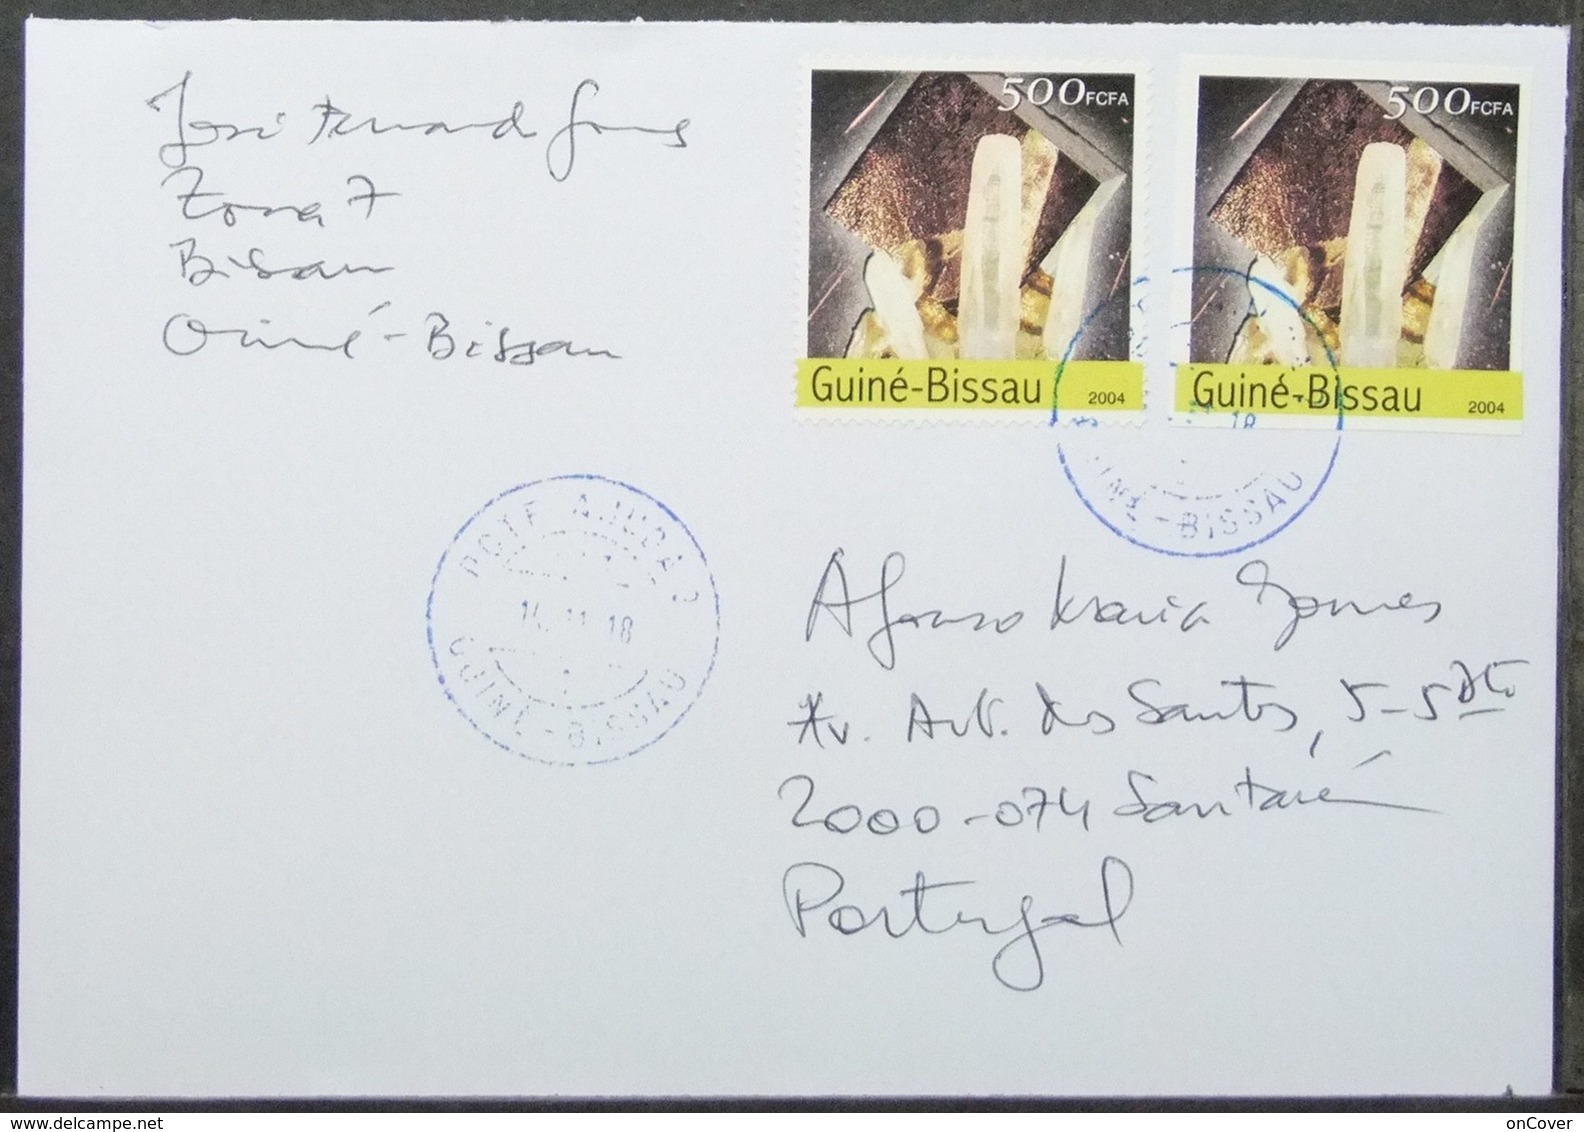 José Fernando Gomes
Zona 7
Bissau
Guiné-Bissau
500FCFA
Guiné-Bissau 2004
500FCFA
Guiné-Bissau 2004
18
GUINÉ-BISSAU
POSTE AJUDA 2
14. 11 18
GUINÉ-BISSAU
Afonso Maria Gomes
Av. Ant. dos Santos, 5-5 Dto
2000-074 Santarém
Portugal
www.delcampe.net
onCover